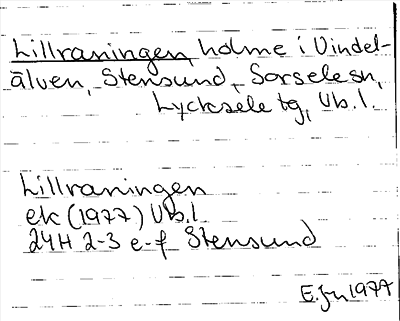 Lillraningen, holme i Vindel-
älven, Stensund, Sorsele sn,
Lycksele tg, Vb.l.
Lillraningen
ek (1977) Vb.l
24H 2-3 e-f Stensund
E.Jn 1977